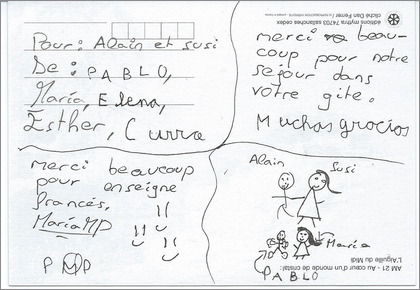 Pour: Alain et susi
De: PABLO,
María, Elena,
Esther, Curra
merci beau-
coup pour notre
sejour dans
votre gite.
Muchas gracias
merci beaucoup
pour enseigne
francés,
MaríaMP
P M P
Alain
Susi
María
PABLO
AM 21 - Au cœur d'un monde de cristal:
L'Aiguille du Midi
éditions mythra 74703 sallanches cedex
cliché Dan Ferrer